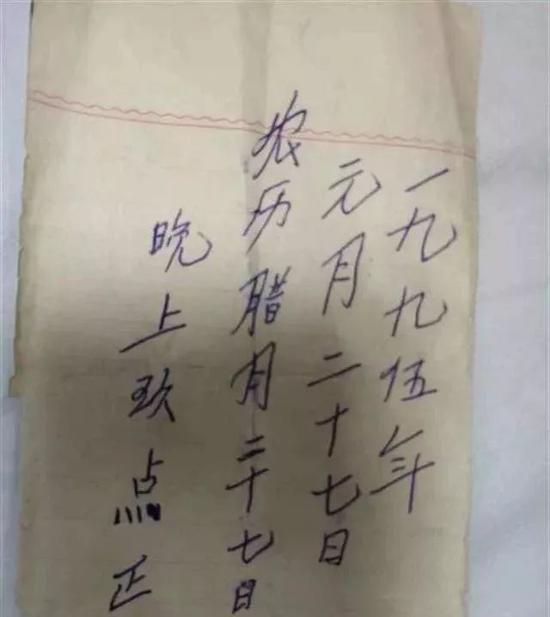 一九九伍年
元月二十七日
农历腊月二十七日
晚上玖点正